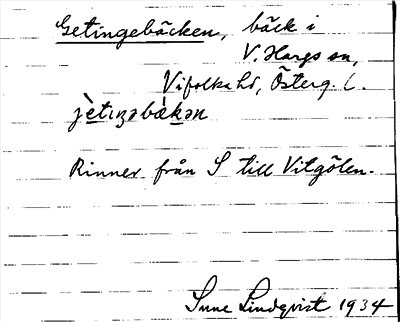 Getingebäcken, bäck i
V. Hargs sn,
Vifolka hd, Österg. l.
jètiŋəbàkən
Rinner från S till Vitgölen.
Sune Lindqvist 1934